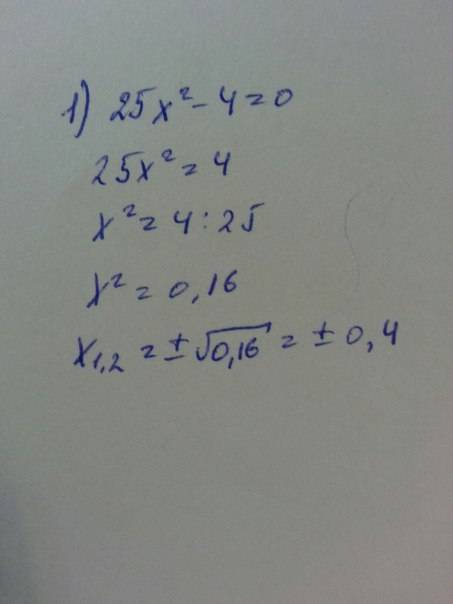 1) 25x² - 4 = 0
25x² = 4
x² = 4 : 25
x² = 0,16
x₁,₂ = ±√0,16 = ± 0,4